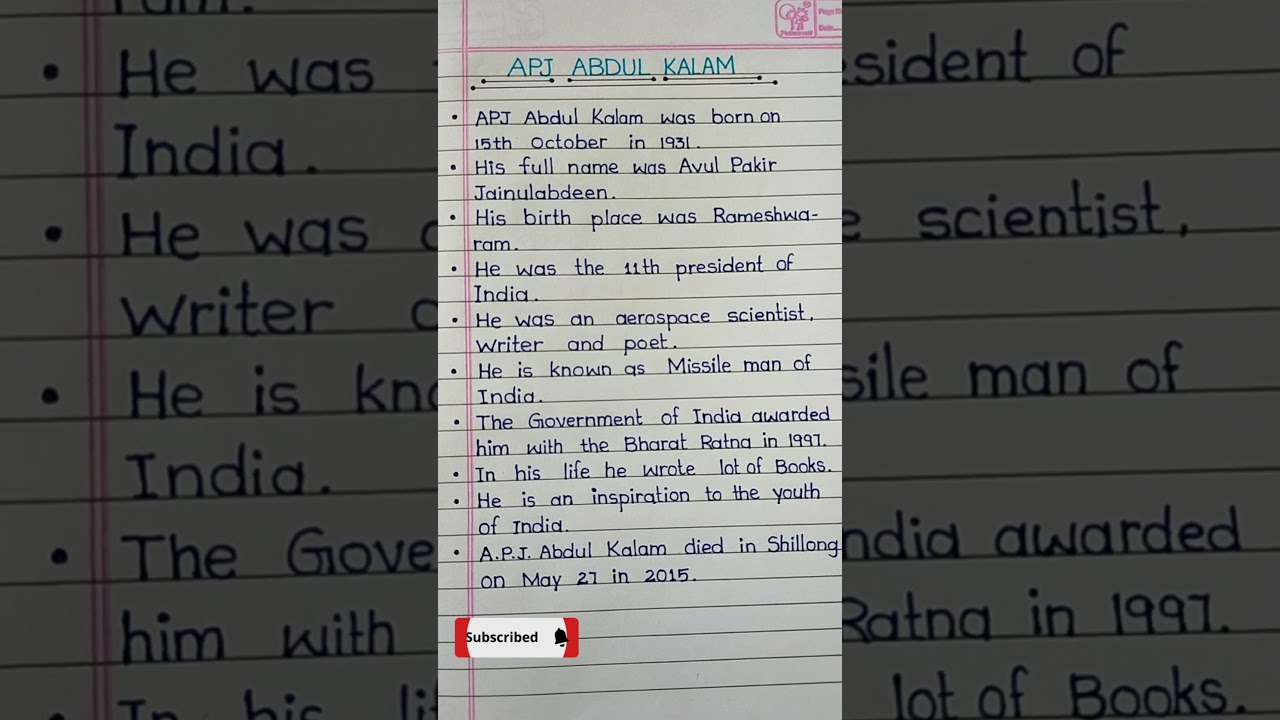 APJ ABDUL KALAM
• APJ Abdul Kalam was born on
15th October in 1931.
• His full name was Avul Pakir
Jainulabdeen.
• His birth place was Rameshwa-
ram.
• He was the 11th president of
India.
• He was an aerospace scientist,
Writer and poet.
• He is known as Missile man of
India.
• The Government of India awarded
him with the Bharat Ratna in 1997.
• In his life he wrote lot of Books.
• He is an inspiration to the youth
of India.
• A.P.J. Abdul Kalam died in Shillong
on May 27 in 2015.
Subscribed